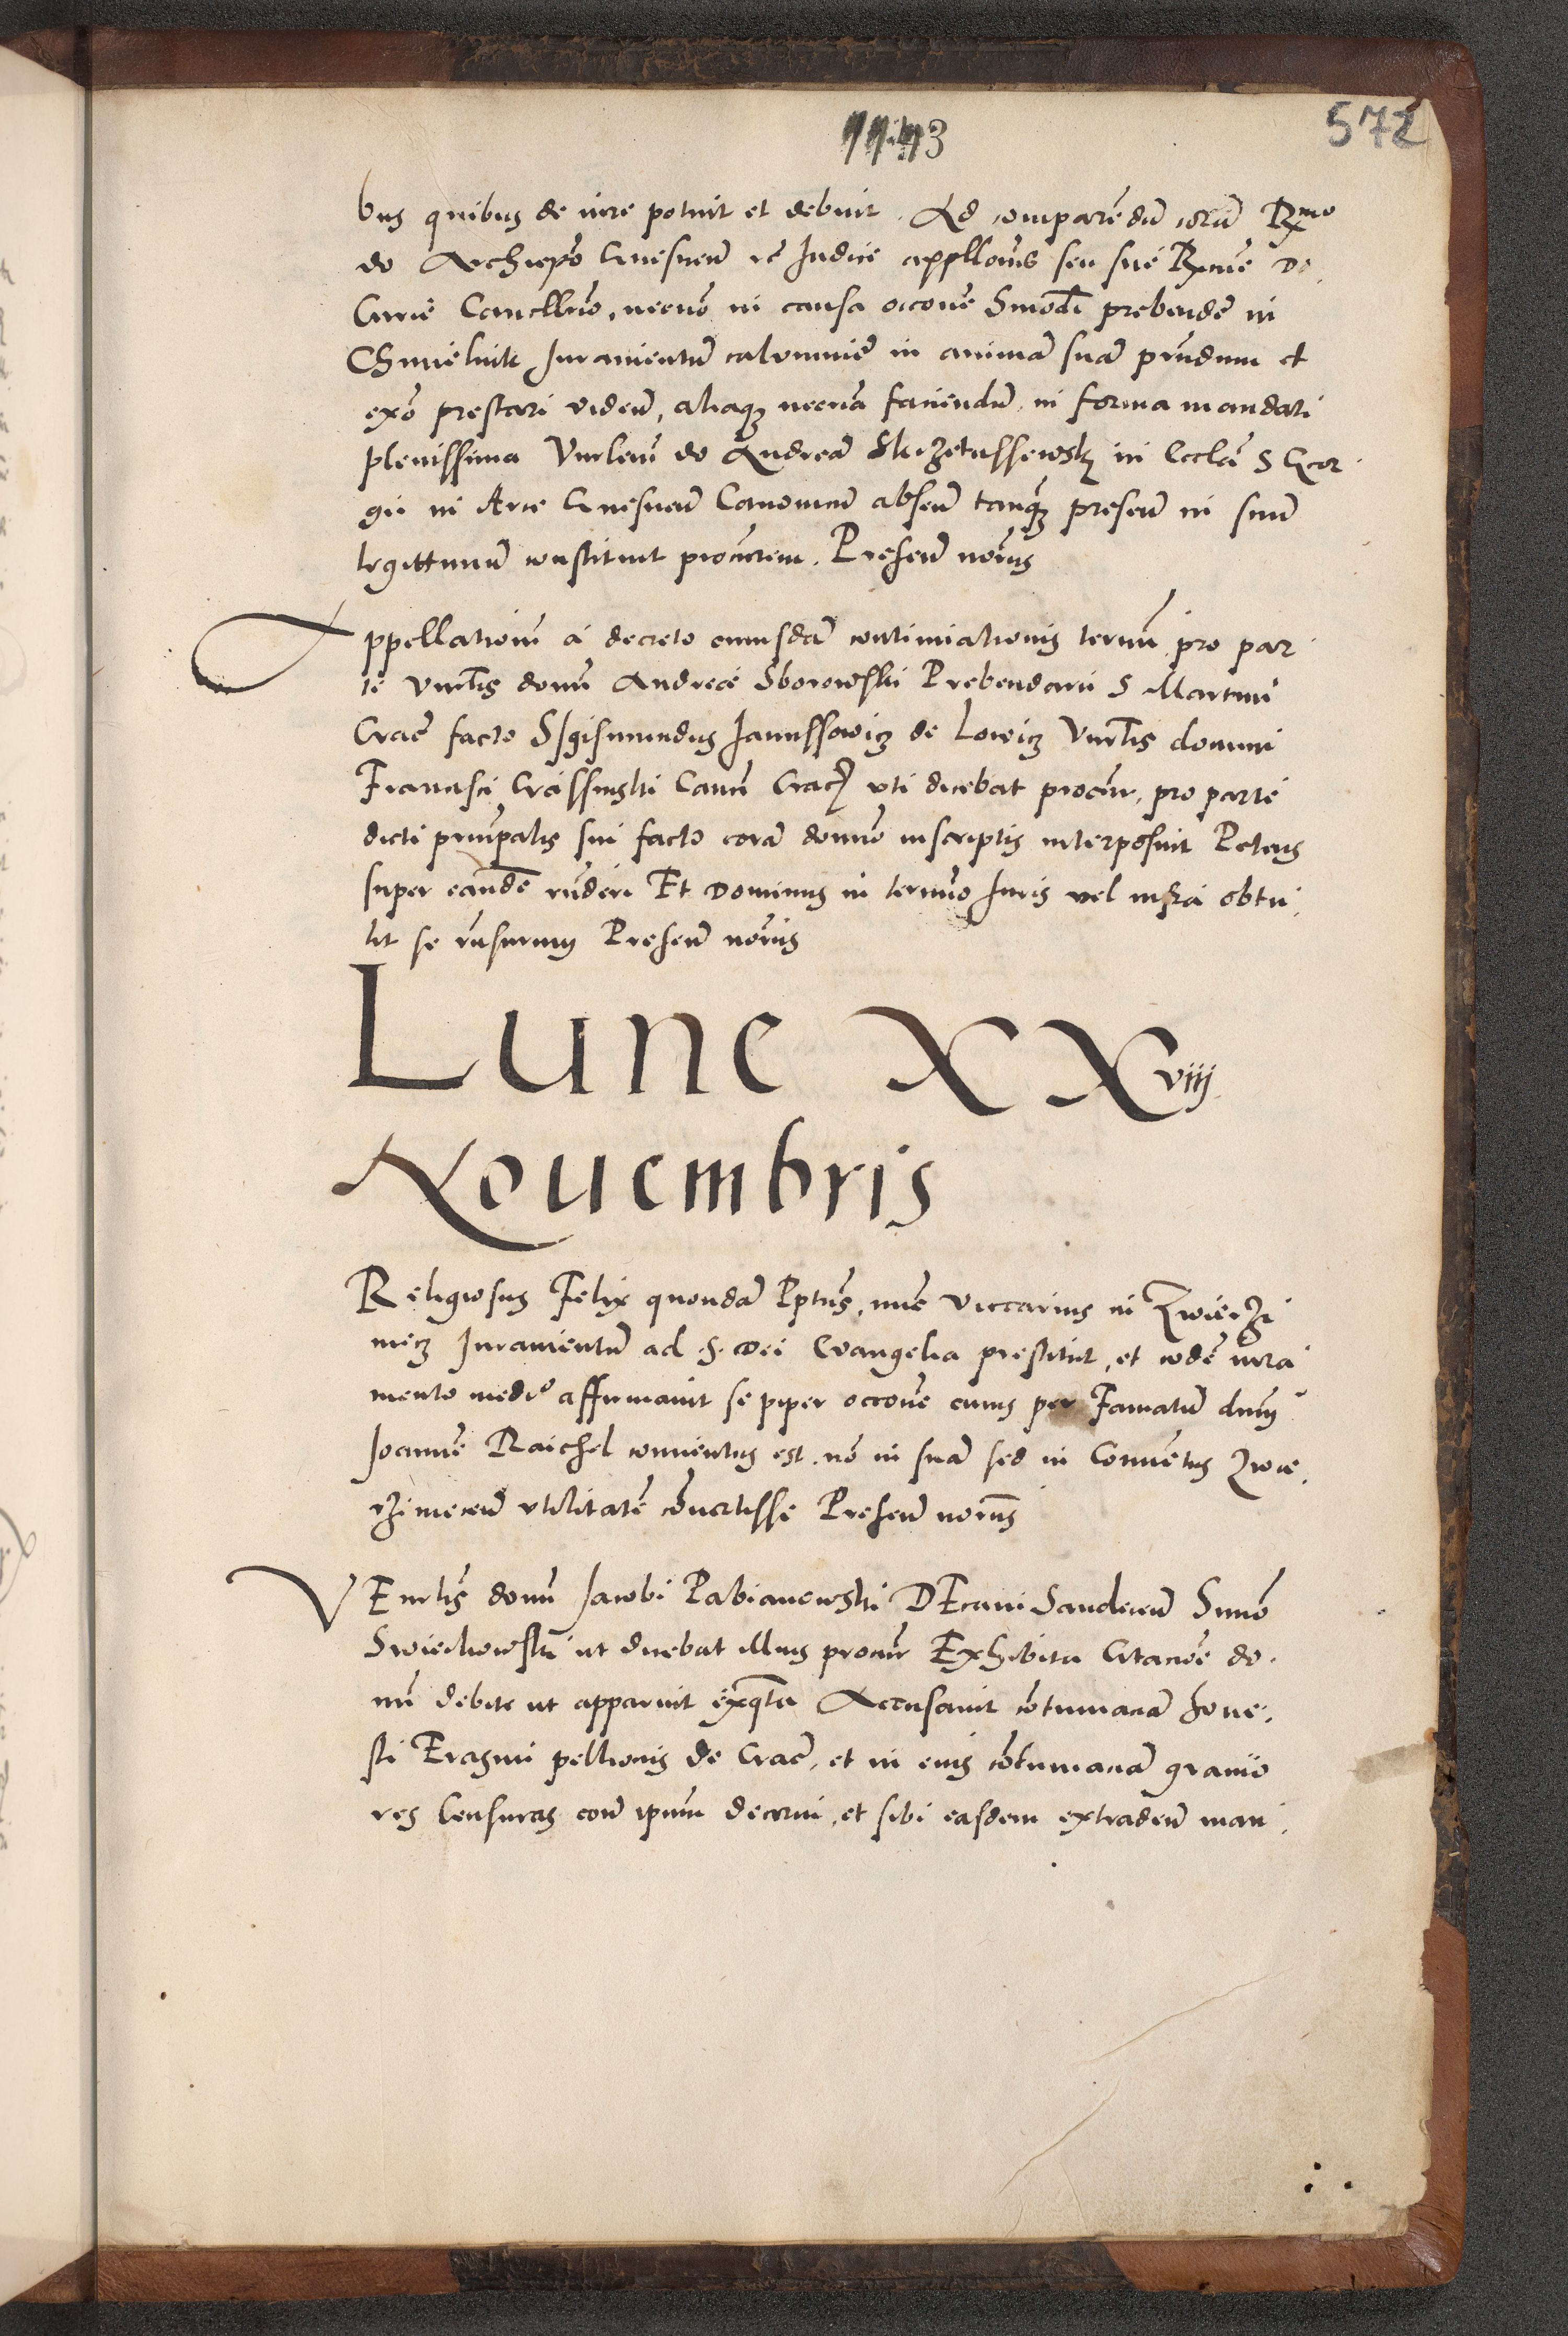 1143
572
bus quibus de iure potuit et debuit. Ad comparēdū corā Rmo
do Archiepō Gnesneñ et Judice appllonis seu sue Rxme do
Curie Cancllrio, necnō in causa occone Smodi prebende in
Chmielnik Juramentū calumnie in animā suā prestandum et
exō prestari videñ, aliaqȝ necriā faciendū in forma mandati
plenissima Vnrlem do Andreā Skrzetussewskȝ in Ecclā S Geor
gii in Arce Gnesneñ Canonicū abseñ tanqȝ preseñ in suū
legittimū constituit procrem. Preseñ noriis
Appellationi a decreto cuiusdā continuationis termi pro par
te Vnrlis domi Andree Sborowski Prebendarii S Martini
Crac facto Sigismundus Janussowicz de Lowicz Vnrlis domini
Francisci Crassinski Canci Crac uti dicebat procur, pro parte
dicti principalis sui facto corā domīo inscriptis interposuit Petens
super eandē rnderi Et Dominus in termīo Juris vel infra obtu
lit se rnsurum Preseñ noriis
Lune XXviij
Nouembris
Religiosus Felix quondā Pptus, nunc viccarius in Zwierzi
niecz Juramentū ad S. Dei Evangelia prestitit, et eodē iura
mento medio affirmavit se piper occone cuius per Famatū dnm
Joannē Raichel conventus est. nō in suā sed in Conventus Zwie
rzinieceñ utilitatē cōvertisse Preseñ noriis
VEnrlis domi Jacobi Pabianowski DEcani Sandecen Simō
Swiechowski ut dicebat illius procur Exhibita Citacōe do
mi debite ut apparuit exqta Accusavit cōtumaciā hone
sti Erasmi pellionis de Crac, et in eius cōtumaciā gravio
res Censuras con ipsum decerni, et sibi easdem extradeñ man